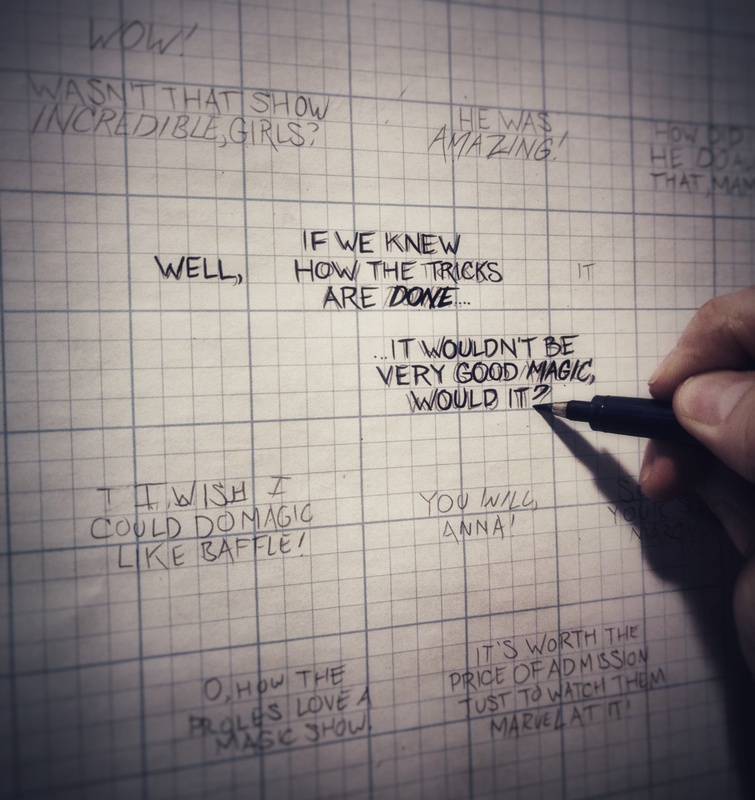 WOW!
WASN'T THAT SHOW
INCREDIBLE, GIRLS?
HE WAS
AMAZING!
HOW DID
HE DO
THAT, MAN
WELL,
IF WE KNEW
HOW THE TRICKS
ARE DONE...
IT
...IT WOULDN'T BE
VERY GOOD MAGIC,
WOULD IT?
I I WISH I
COULD DO MAGIC
LIKE BAFFLE!
YOU WILL,
ANNA!
O, HOW THE
PROLES LOVE A
MAGIC SHOW.
IT'S WORTH THE
PRICE OF ADMISSION
JUST TO WATCH THEM
MARVEL AT IT!